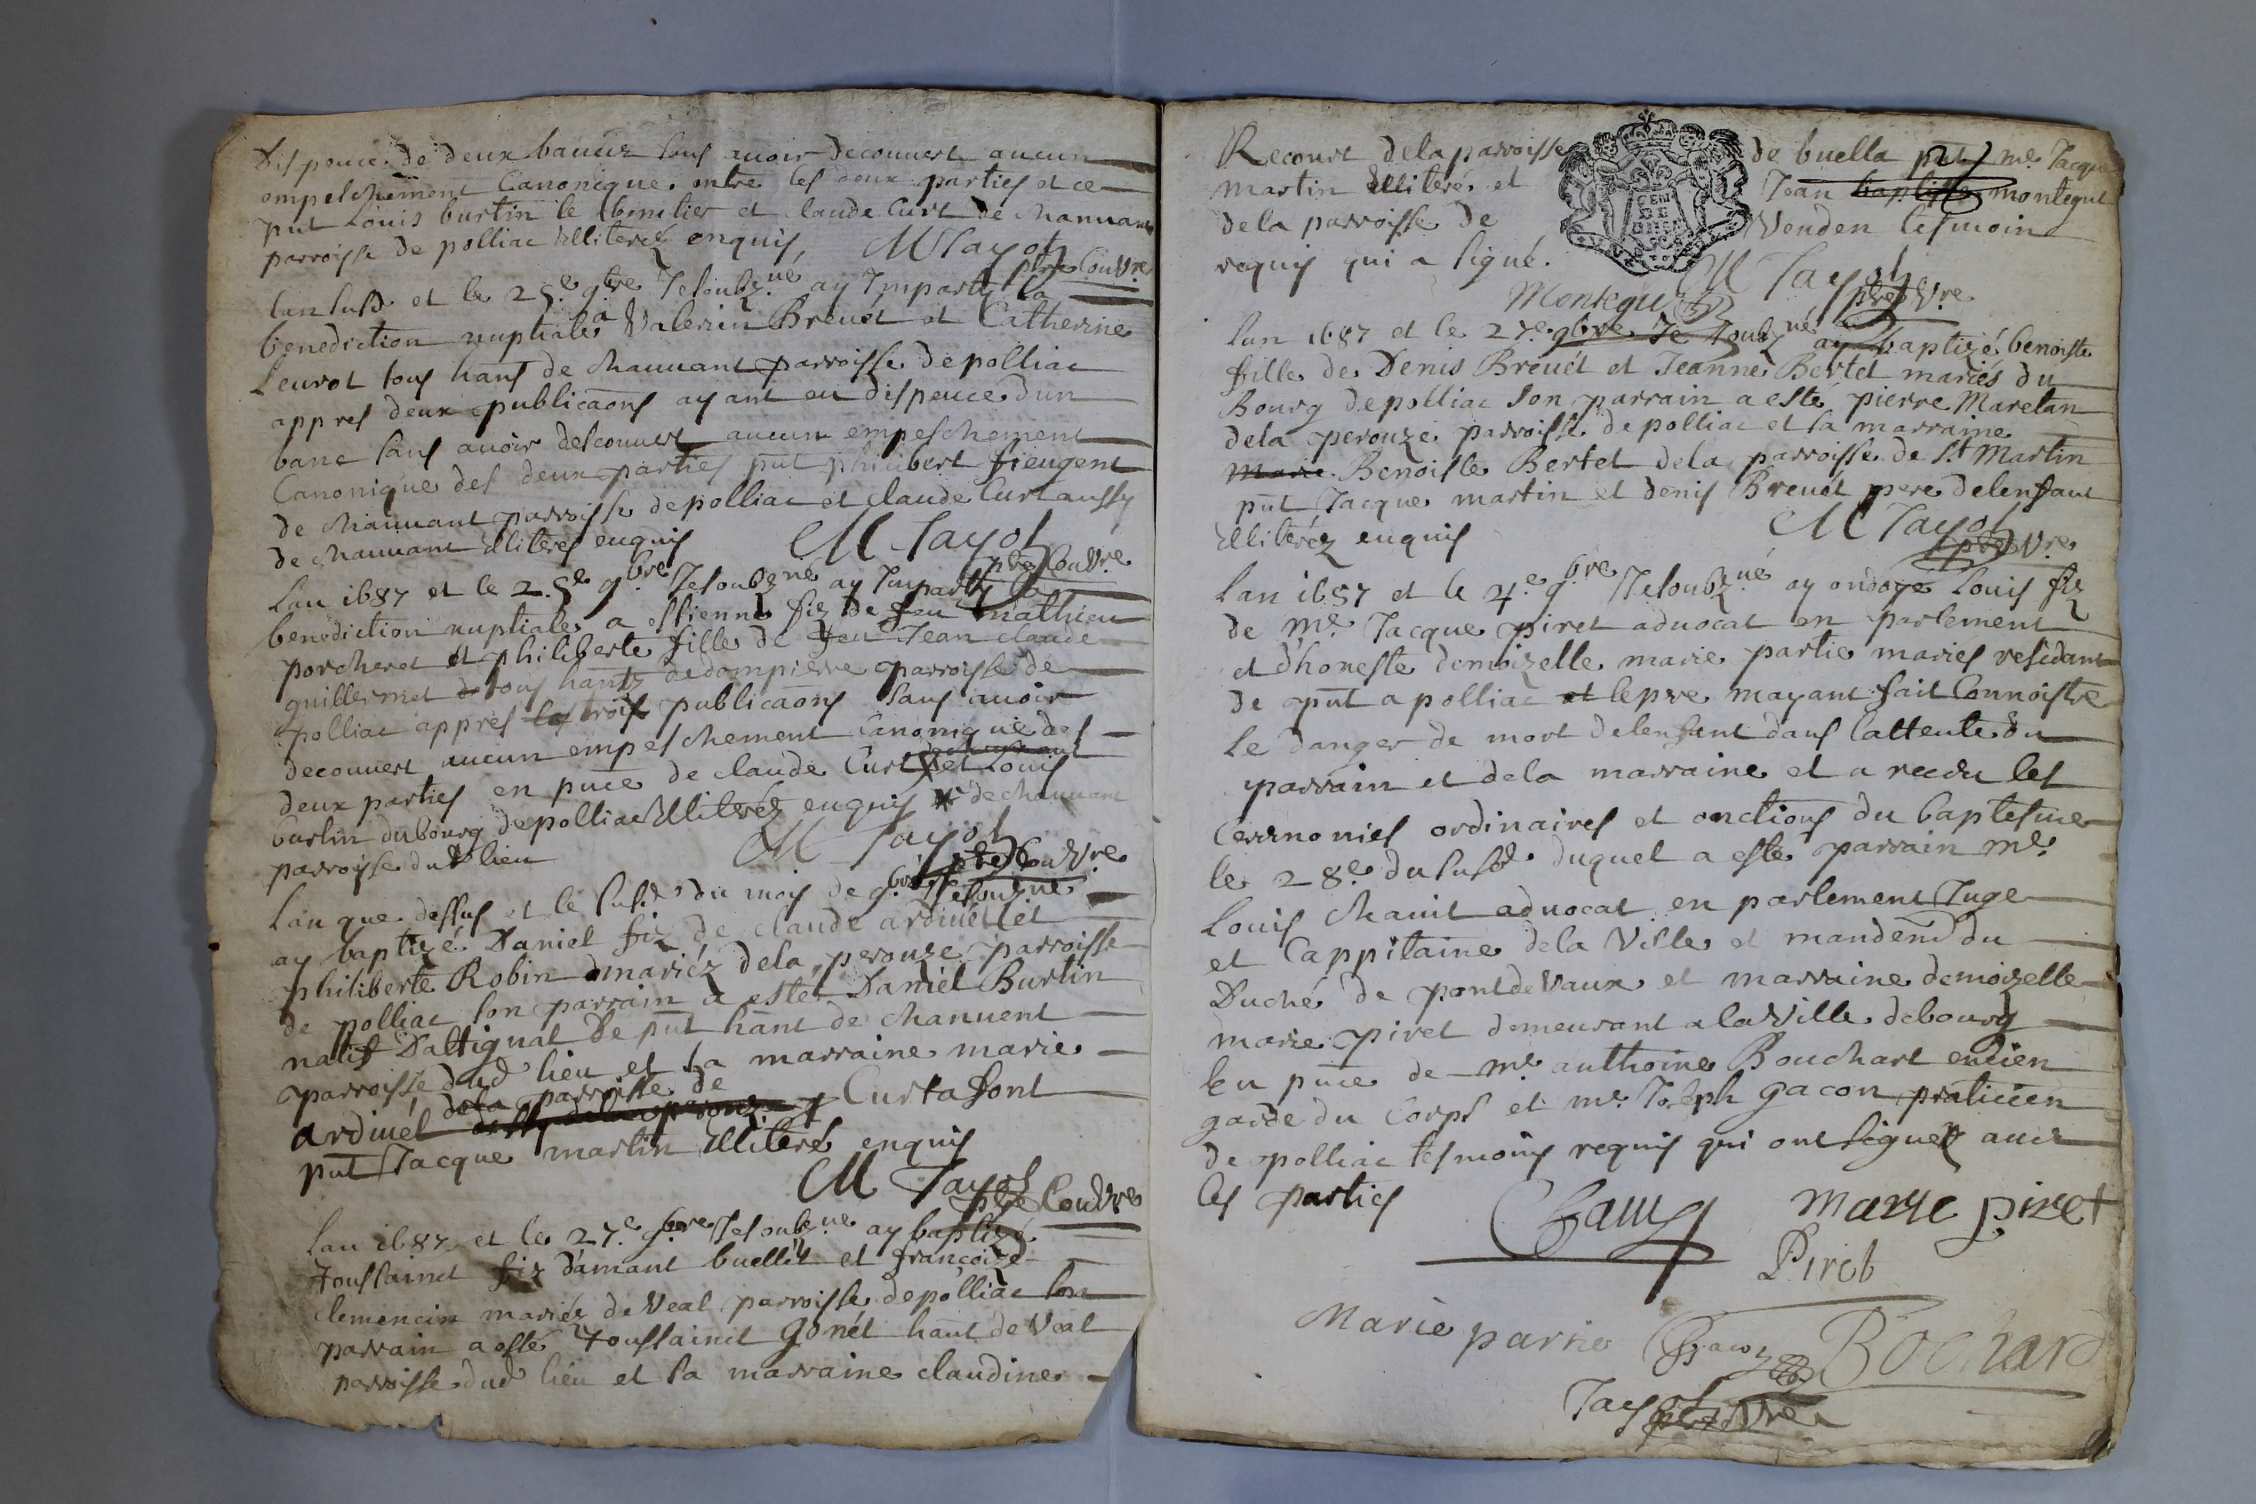 Dispence de deux bancz sans avoir decouvert aucun
empeschement Canonique entre les deux parties et ce
pnt Louis burtin le et claude Curt de chanuant
parroisse de polliac illiterez enquis
M Tayot
pbre Couvre
Lan susd et le 25e 9bre Je soubzné ay Imparty la
benediction nuptiale a Valerien Brevet et Catherine
Leurot tous hants de chanuant parroisse de polliac
appres deux publicaons ayant eu dispence dun
banc sans avoir descouvert aucun empeschement
Canonique des deux parties pnt philibert fieugent
de chanuant parroisse de polliac et claude Curt aussy
de chanuant illiterés enquis
M Tayot
pbre Couvre
Lan 1687 et le 25e 9bre Je soubzné ay Imparty la
benediction nuptiale a estienne fiz de feu mathieu
porcheret et philiberte fille de feu Jean claude
guillermet tous hantz de dompierre parroisse de
polliac appres les trois publicaons sans avoir
decouvert aucun empeschement Canonique des
deux parties en pnce de claude Curt de chanuant et Louis
burtin du bourg de polliac illiterez enquis de chanuant
parroisse dud lieu
M Tayot
pbre Couvre
Lan que dessus et le susd du mois de 9bre Je soubzné
ay baptizé Daniel fiz de claude ardivel et
philiberte Robin mariéz de la perouze parroisse
de polliac son parrain a esté Daniel Burtin
natif Dattignat de pnt hant de chanuent
parroisse dud lieu et la marraine marie
de la parroisse de
ardivel de la perouze Curtafont
pnt Jacque martin illiteré enquis
M Tayot
pbre Couvre
Lan 1687 et le 27e 9bre Je soubzné ay baptizé
toussainct fiz damant buellet et françoize
clemencin mariéz de Veal parroisse de polliac son
parrain a esté toussainct gonét hant de Veal
parroisse dud lieu et sa marraine claudine
Recourt de la parroisse de buella pnt me Jacque
martin illiteré et Jean baptiste montegut
de la parroisse de Venden tesmoin
requis qui a signé.
M Tayot
Montegu pbre Vre
Lan 1687 et le 27e 9bre Je soubzné ay baptizé benoiste
fille de Denis Brevét et Jeanne Bertet mariés du
Bourg de polliac son parrain a esté pierre Maretan
de la perouze parroisse de polliac et sa marraine
Marie Benoiste Bertet de la parroisse de St Martin
pnt Jacque martin et denis Brevét pere delenfant
illiteréz enquis
M Tayot
pbre Vre
Lan 1687 et le 4e 9bre Je soubzné ay ondoyé Louis fiz
de me Jacque piret advocat en parlement
et dhoneste demoizelle marie partie mariés residant
de pnt a polliac et le pre mayant fait Connoistre
le danger de mort delenfant dans lattente du
parrain et de la marraine et a receu les
ceremonies ordinaires et onctions du baptesme
le 28e du susd duquel a esté parrain me
Louis chanit advocat en parlement Juge
et Cappitaine de la Ville et mandemt du
Duché de pontdevaux et marraine demoizelle
marie piret demeurant a la Ville de bourg
En pnce de me anthoine Bouchart encien
garde du Corps et me Joseph gacon praticien
de polliac tesmoins requis qui ont signez avec
les parties
marie piret
Piret
Marie partie Gacon Bochard
Tayot
pbre Vre